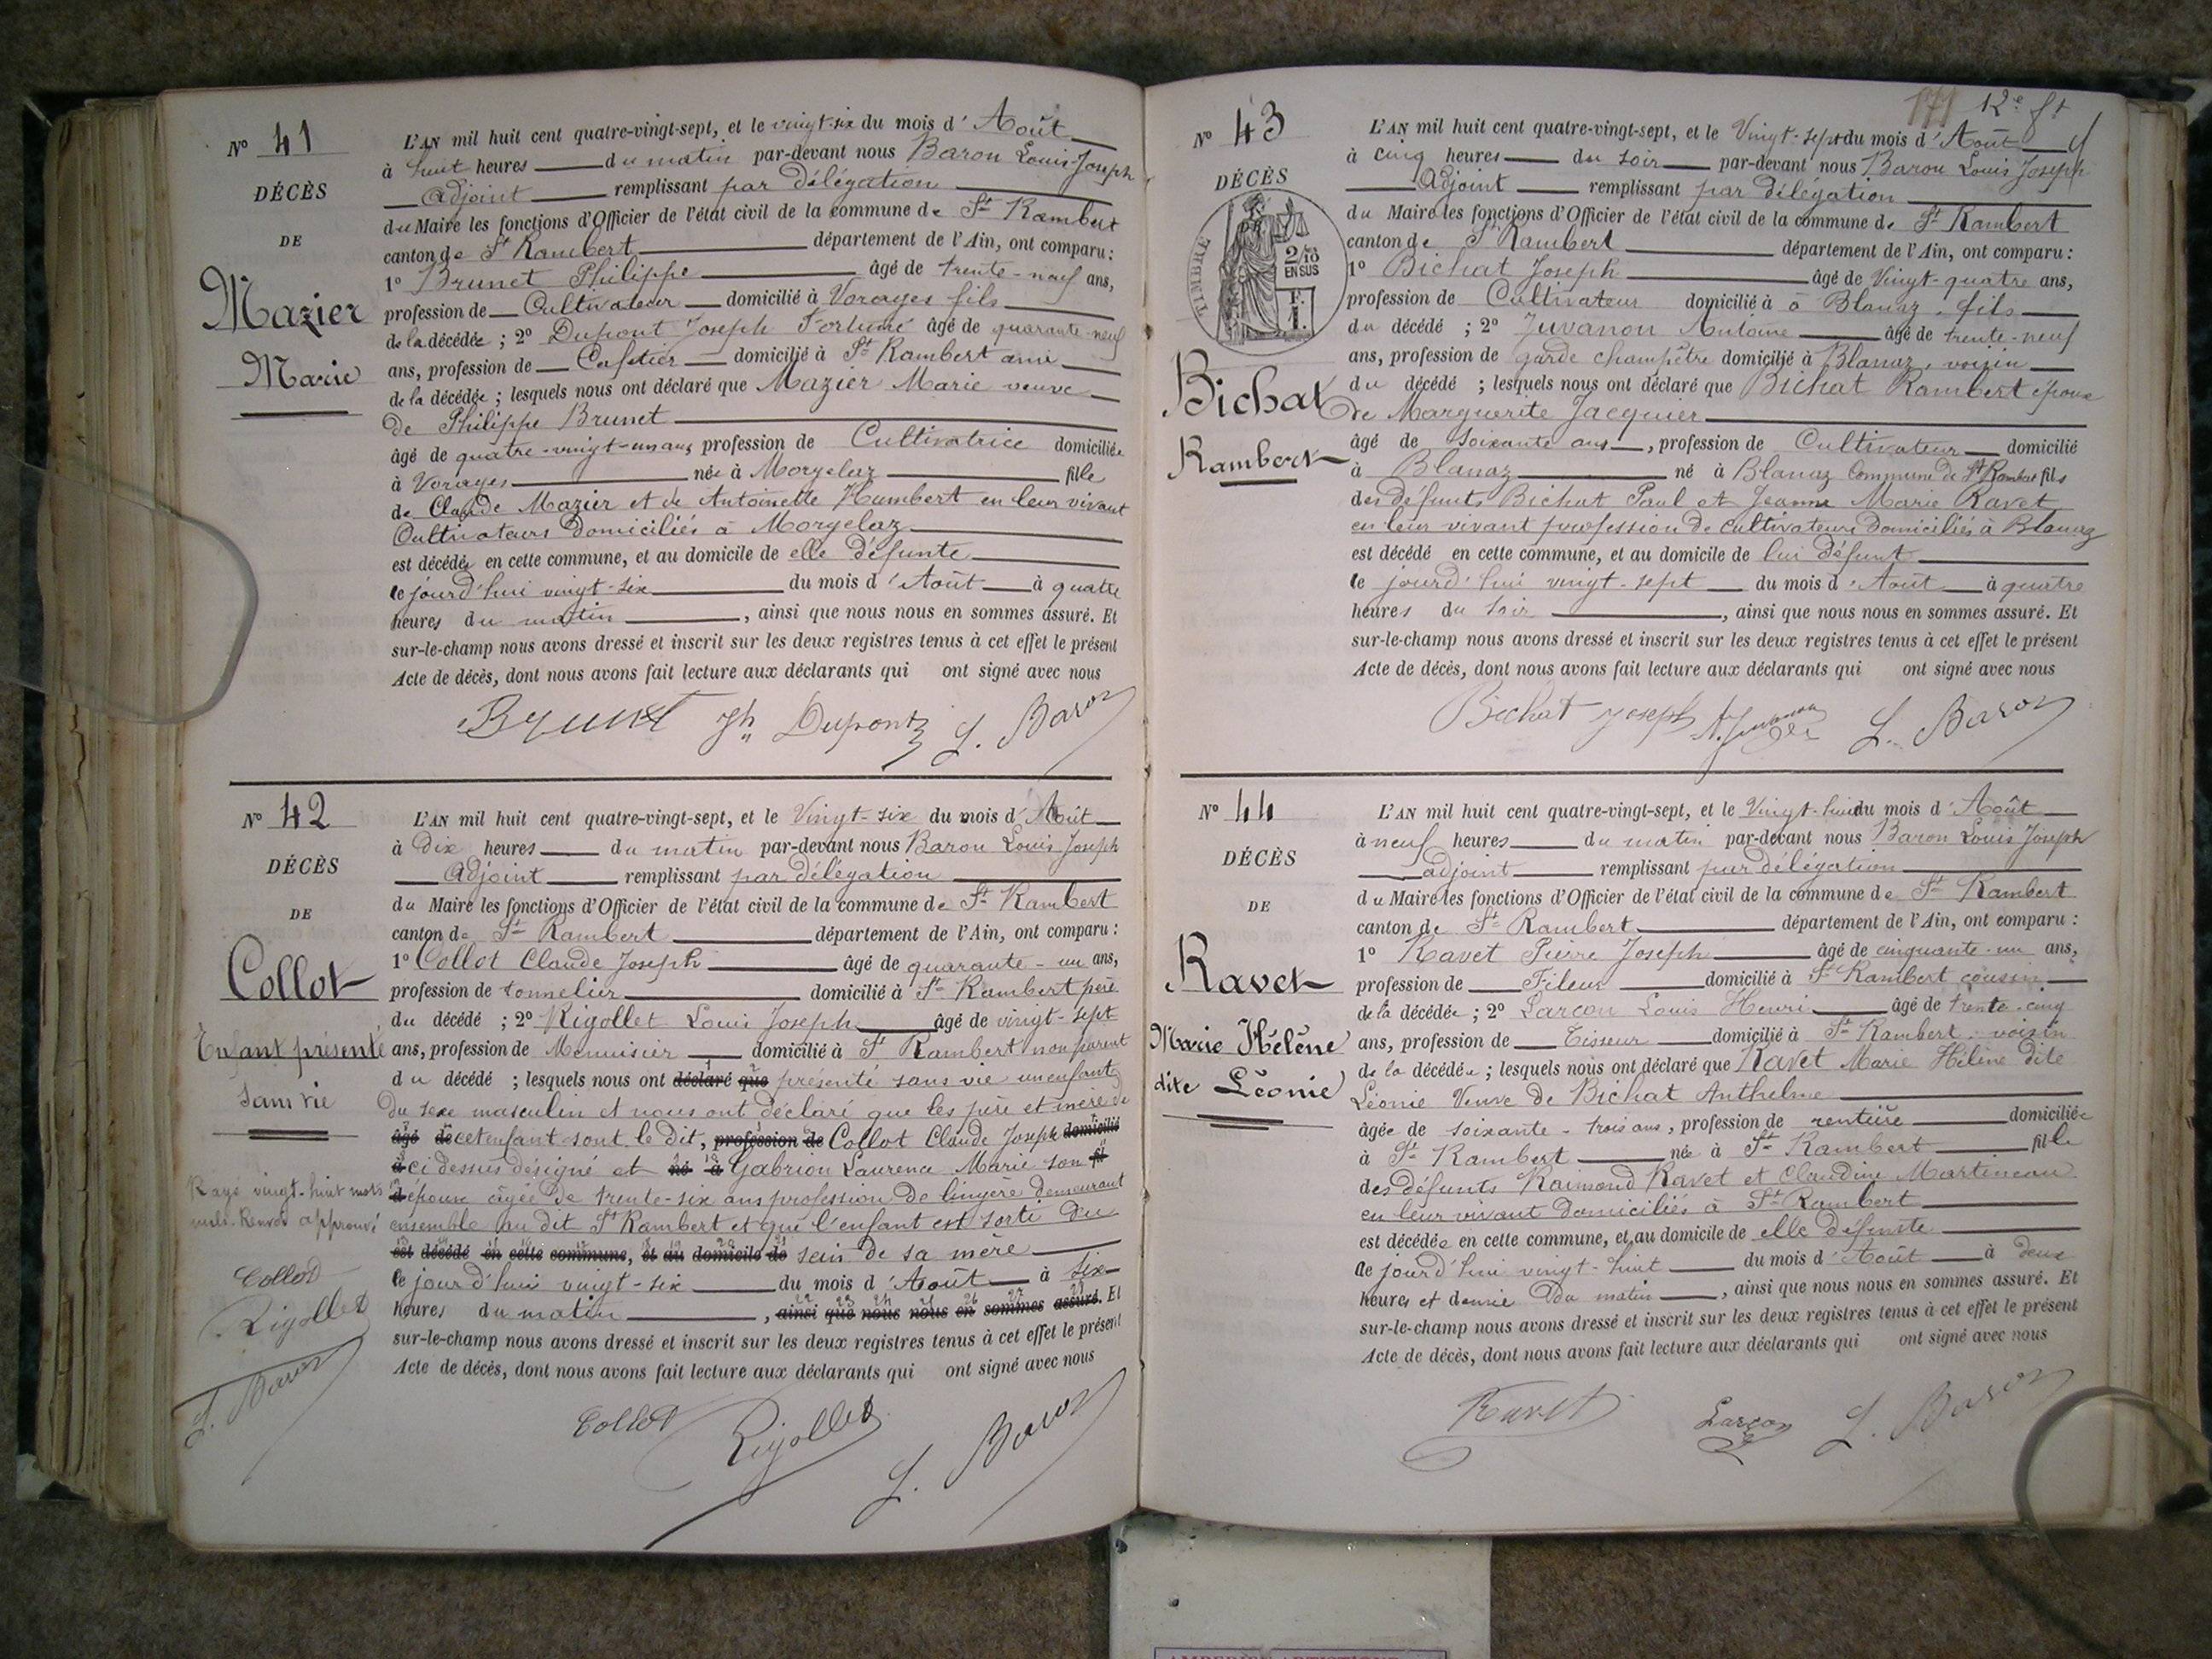 N° 41
DÉCÈS
DE
Mazier
Marie
L'AN mil huit cent quatre-vingt-sept, et le vingt-six du mois d'Août
à huit heures du matin par-devant nous Baron Louis-Joseph
Adjoint remplissant par délégation
du Maire les fonctions d'Officier de l'état civil de la commune de St Rambert
canton de St Rambert département de l'Ain, ont comparu :
1° Brunet Philippe âgé de trente-neuf ans,
profession de Cultivateur domicilié à Vorages fils
de la décédée ; 2° Dupont Joseph Fortuné âgé de quarante-neuf
ans, profession de Cafetier domicilié à St Rambert ami
de la décédée ; lesquels nous ont déclaré que Mazier Marie veuve
de Philippe Brunet
âgé de quatre-vingt-un ans profession de Cultivatrice domiciliée
à Vorages née à Morgelaz fille
de Claude Mazier et de Antoinette Humbert en leur vivant
Cultivateurs domiciliés à Morgelaz
est décédée en cette commune, et au domicile de elle défunte
le jourd'hui vingt-six du mois d'Août à quatre
heures du matin , ainsi que nous nous en sommes assuré. Et
sur-le-champ nous avons dressé et inscrit sur les deux registres tenus à cet effet le présent
Acte de décès, dont nous avons fait lecture aux déclarants qui ont signé avec nous
Brunet Jh Dupont L. Baron
N° 42
DÉCÈS
DE
Collot
Enfant présenté
sans vie
Rayé vingt-huit mots
nuls. Renvoi approuvé
Collot
Rigollet
L. Baron
L'AN mil huit cent quatre-vingt-sept, et le Vingt-six du mois d'Août
à dix heures du matin par-devant nous Baron Louis Joseph
Adjoint remplissant par délégation
du Maire les fonctions d'Officier de l'état civil de la commune de St Rambert
canton de St Rambert département de l'Ain, ont comparu :
1° Collot Claude Joseph âgé de quarante-un ans,
profession de tonnelier domicilié à St Rambert père
du décédé ; 2° Rigollet Louis Joseph âgé de vingt-sept
ans, profession de Menuisier domicilié à St Rambert non parent
du décédé ; lesquels nous ont déclaré que présenté sans vie un enfant
du sexe masculin et nous ont déclaré que les père et mère de
âgé de cet enfant sont le dit, profession de Collot Claude Joseph domicilié
à ci dessus désigné et né à Gabrion Laurence Marie son fil
d épouse âgée de trente-six ans profession de lingère demeurant
ensemble au dit St Rambert et que l'enfant est sorti du
est décédé en cette commune, et au domicile de sein de sa mère
le jourd'hui vingt-six du mois d'Août à six
heures du matin , ainsi que nous nous en sommes assuré. Et
sur-le-champ nous avons dressé et inscrit sur les deux registres tenus à cet effet le présent
Acte de décès, dont nous avons fait lecture aux déclarants qui ont signé avec nous
Collot Rigollet L. Baron
171 12e ft
N° 43
DÉCÈS
TIMBRE
2/10
EN SUS
Bichat
Rambert
L'AN mil huit cent quatre-vingt-sept, et le Vingt-sept du mois d'Août
à cinq heures du soir par-devant nous Baron Louis Joseph
Adjoint remplissant par délégation
du Maire les fonctions d'Officier de l'état civil de la commune de St Rambert
canton de St Rambert département de l'Ain, ont comparu :
1° Bichat Joseph âgé de Vingt-quatre ans,
profession de Cultivateur domicilié à à Blanaz, fils
du décédé ; 2° Juvanon Antoine âgé de trente-neuf
ans, profession de garde champêtre domicilié à Blanaz, voisin
du décédé ; lesquels nous ont déclaré que Bichat Rambert époux
de Marguerite Jacquier
âgé de soixante ans, profession de Cultivateur domicilié
à Blanaz né à Blanaz Commune de St Rambert fils
des défunts Bichat Paul et Jeanne Marie Ravet
en leur vivant profession de cultivateurs domiciliés à Blanaz
est décédé en cette commune, et au domicile de lui défunt
le jourd'hui vingt-sept du mois d'Août à quatre
heures du soir , ainsi que nous nous en sommes assuré. Et
sur-le-champ nous avons dressé et inscrit sur les deux registres tenus à cet effet le présent
Acte de décès, dont nous avons fait lecture aux déclarants qui ont signé avec nous
Bichat Joseph A. Juvanon L. Baron
N° 44
DÉCÈS
DE
Ravet
Marie Hélène
dite Léonie
L'AN mil huit cent quatre-vingt-sept, et le Vingt-huit du mois d'Août
à neuf heures du matin par-devant nous Baron Louis Joseph
adjoint remplissant par délégation
du Maire les fonctions d'Officier de l'état civil de la commune de St Rambert
canton de St Rambert département de l'Ain, ont comparu :
1° Ravet Pierre Joseph âgé de cinquante-un ans,
profession de Fileur domicilié à St Rambert cousin
de la décédée ; 2° Larcon Louis Henri âgé de trente-cinq
ans, profession de Tisseur domicilié à St Rambert, voisin
de la décédée ; lesquels nous ont déclaré que Ravet Marie Hélène dite
Léonie Veuve de Bichat Anthelme
âgée de soixante-trois ans, profession de rentière domiciliée
à St Rambert née à St Rambert fille
des défunts Raimond Ravet et Claudine Martineau
en leur vivant domiciliés à St Rambert
est décédée en cette commune, et au domicile de elle défunte
le jourd'hui vingt-huit du mois d'Août à deux
heures et demie du matin , ainsi que nous nous en sommes assuré. Et
sur-le-champ nous avons dressé et inscrit sur les deux registres tenus à cet effet le présent
Acte de décès, dont nous avons fait lecture aux déclarants qui ont signé avec nous
Ravet Larcon L. Baron